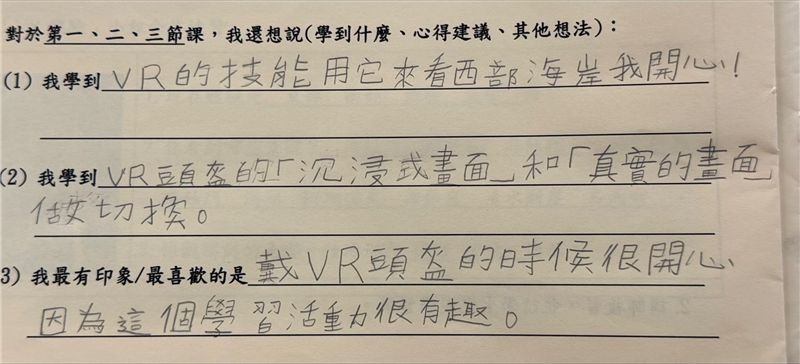 對於第一、二、三節課，我還想說(學到什麼、心得建議、其他想法)：
(1) 我學到VR的技能用它來看西部海岸我開心!
(2) 我學到VR頭盔的「沉浸式畫面」和「真實的畫面
做切換。
3) 我最有印象/最喜歡的是戴VR頭盔的時候很開心
因為這個學習活動很有趣。